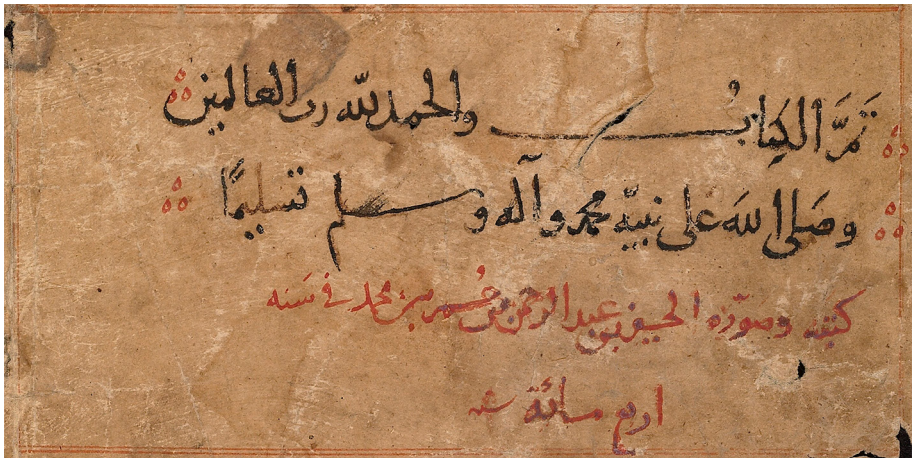 تَمَّ الكِتابُ والحمد لله رب العالمين
وصَلى اللهَ على نبيّه محمد وآله وسلم تسليمًا
كتبه وصوّره الحسين بن عبد الرحمن بن عُمر بن محمد في سَنه
اربع مائة